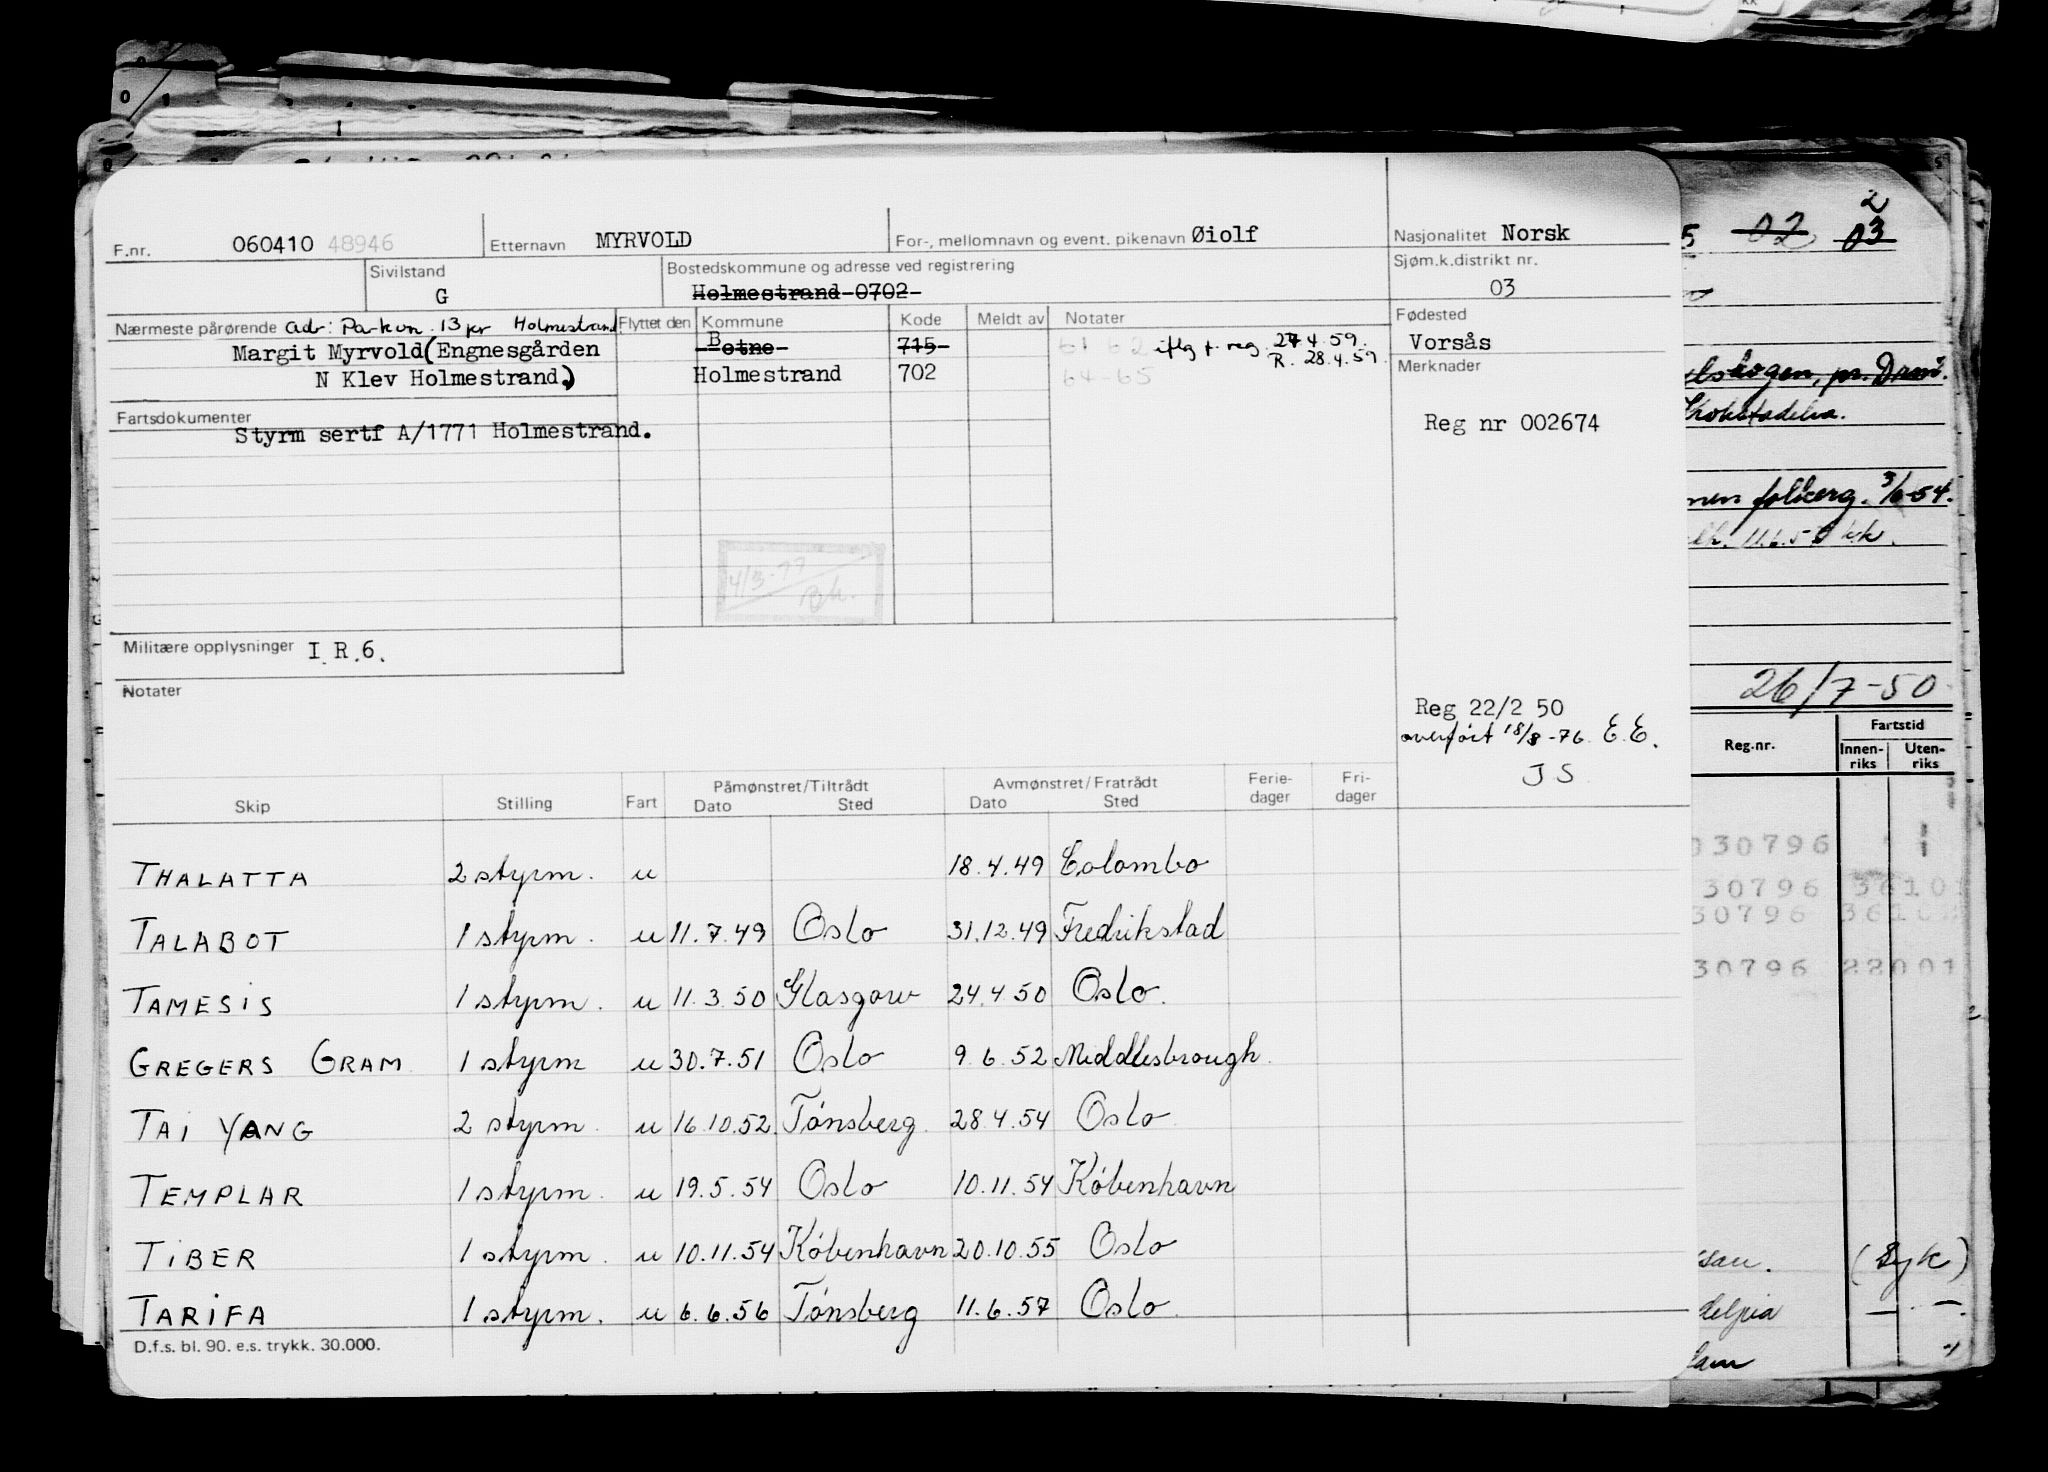 F.nr. 060410 48946 Etternavn MYRVOLD For-, mellomnavn og event. pikenavn Øiolf Nasjonalitet Norsk
Sivilstand Bostedskommune og adresse ved registrering Sjøm.k.distrikt nr.
G Holmestrand 0702 03
Nærmeste pårørende adr: Parkvn. 13 pr Holmestrand Flyttet den Kommune Kode Meldt av Notater Fødested
Margit Myrvold (Engnesgården Botne 715 61 62 iflg f. reg. 27.4.59. Vorsås
R. 28.4.59
N Klev Holmestrand.) Holmestrand 702 64-65 Merknader
Fartsdokumenter
Styrm sertf A/1771 Holmestrand. Reg nr 002674
4/3-77
Militære opplysninger I.R.6.
Notater
Reg 22/2 50
overført 18/8-76. E.E.
J S
Påmønstret/Tiltrådt Avmønstret/Fratrådt Ferie- Fri-
Skip Stilling Fart Dato Sted Dato Sted dager dager
THALATTA 2 styrm. u 18.4.49 Colombo
TALABOT 1 styrm. u 11.7.49 Oslo 31.12.49 Fredrikstad
TAMESIS 1 styrm. u 11.3.50 Glasgow 24.4.50 Oslo.
GREGERS GRAM 1 styrm u 30.7.51 Oslo 9.6.52 Middlesbrough.
TAI YANG 2 styrm. u 16.10.52. Tönsberg. 28.4.54 Oslo
TEMPLAR 1 styrm. u 19.5.54 Oslo 10.11.54 København
TIBER 1 styrm. u 10.11.54 København 20.10.55 Oslo
TARIFA 1 styrm. u 6.6.56 Tönsberg 11.6.57 Oslo.
D.f.s. bl. 90. e.s. trykk. 30.000.
2
5 02 03
pr. Dram.
folkerg. 3/6-54.
11.6.5
26/7-50
Reg.nr. Fartstid
Innen- Uten-
riks riks
030796
30796 36101
30796
30796 22001
(Syk)